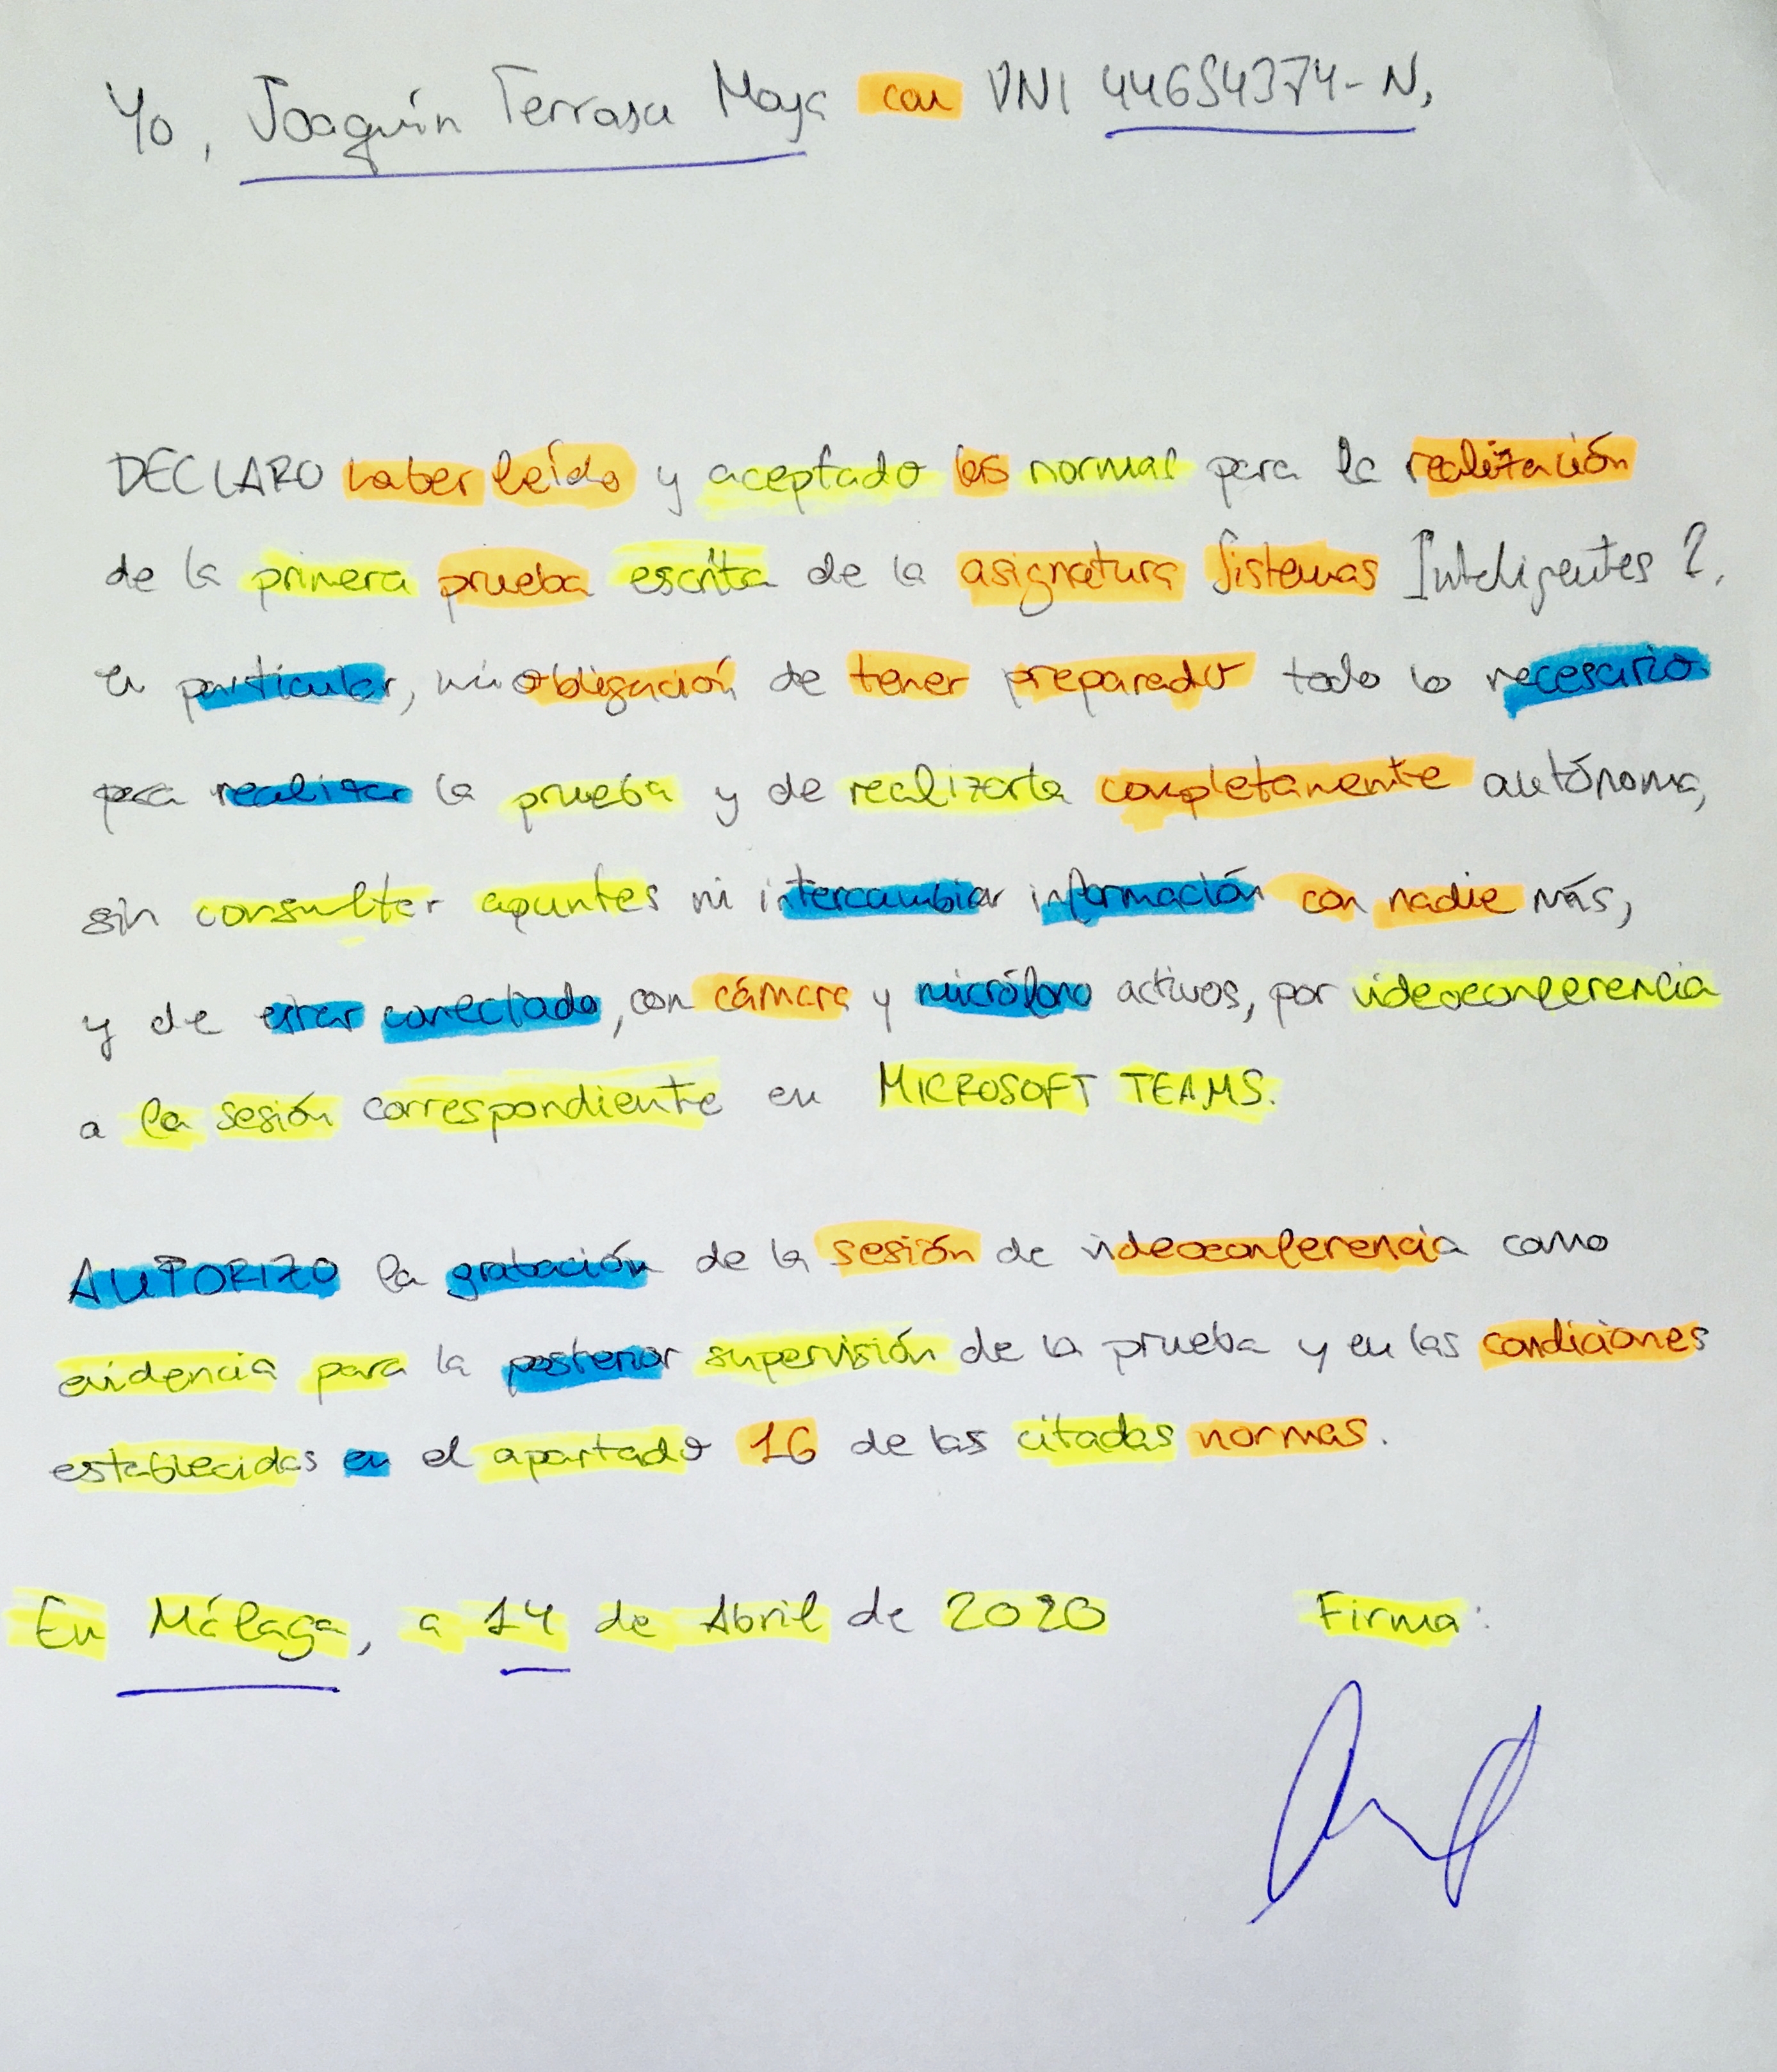 Yo, Joaquín Terrasa Moya con DNI 44654374-N,
DECLARO haber leído y aceptado las normas para la realización
de la primera prueba escrita de la asignatura Sistemas Inteligentes 2,
en particular, mi obligación de tener preparado todo lo necesario
para realizar la prueba y de realizarla completamente autónoma,
sin consultar apuntes ni intercambiar información con nadie más,
y de estar conectado, con cámara y micrófono activos, por videoconferencia
a la sesión correspondiente en MICROSOFT TEAMS.
AUTORIZO la grabación de la sesión de videoconferencia como
evidencia para la posterior supervisión de la prueba y en las condiciones
establecidas en el apartado 16 de las citadas normas.
En Málaga, a 14 de Abril de 2020 Firma: